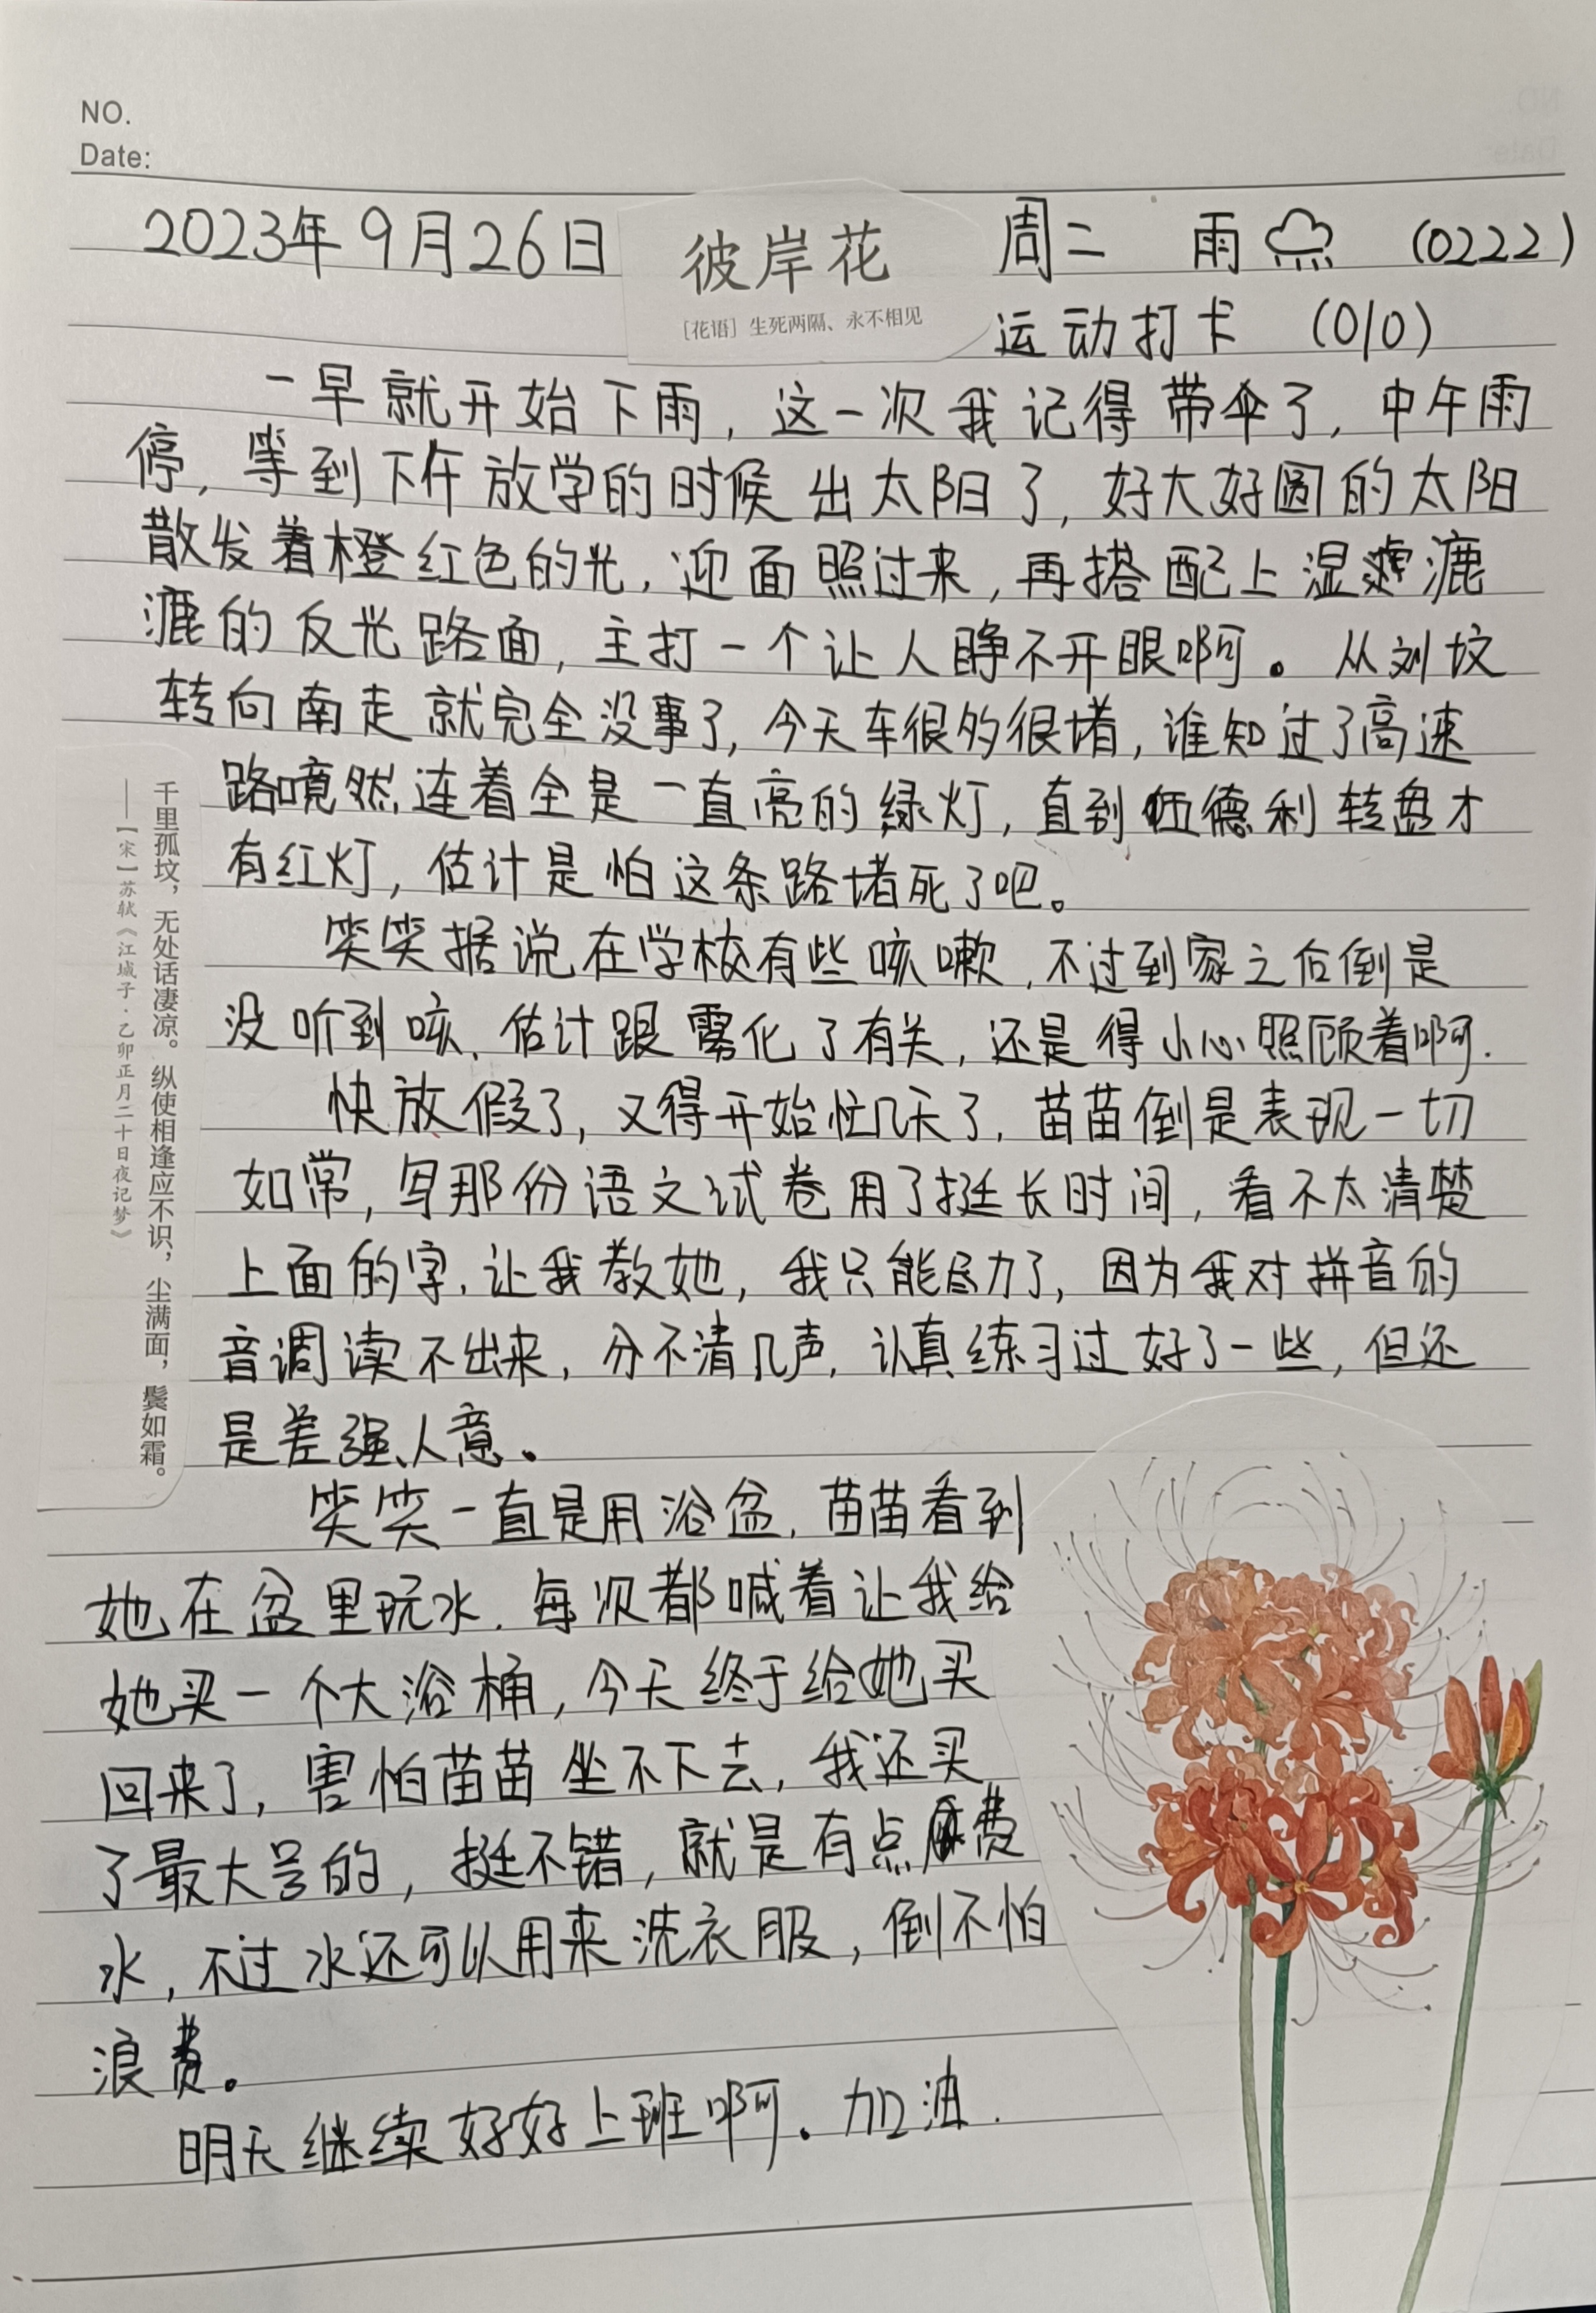 NO.
Date:
2023年9月26日 彼岸花 周二 雨 (0222)
[花语] 生死两隔、永不相见
运动打卡 (010)
一早就开始下雨，这一次我记得带伞了，中午雨
停，等到下午放学的时候出太阳了，好大好圆的太阳
散发着橙红色的光，迎面照过来，再搭配上湿漉
漉的反光路面，主打一个让人睁不开眼啊。从刘坟
转向南走就完全没事了，今天车很多很堵，谁知过了高速
路竟然连着全是一直亮的绿灯，直到伍德利转盘才
有红灯，估计是怕这条路堵死了吧。
笑笑据说在学校有些咳嗽，不过到家之后倒是
没听到咳，估计跟雾化了有关，还是得小心照顾着啊.
快放假了，又得开始忙几天了，苗苗倒是表现一切
如常，写那份语文试卷用了挺长时间，看不太清楚
上面的字，让我教她，我只能尽力了，因为我对拼音的
音调读不出来，分不清几声，认真练习过好了一些，但还
是差强人意。
笑笑一直是用浴盆，苗苗看到
她在盆里玩水，每次都喊着让我给
她买一个大浴桶，今天终于给她买
回来了，害怕苗苗坐不下去，我还买
了最大号的，挺不错，就是有点费
水，不过水还可以用来洗衣服，倒不怕
浪费。
明天继续好好上班啊。加油.
千里孤坟，无处话凄凉。纵使相逢应不识，尘满面，鬓如霜。
——[宋]苏轼《江城子·乙卯正月二十日夜记梦》